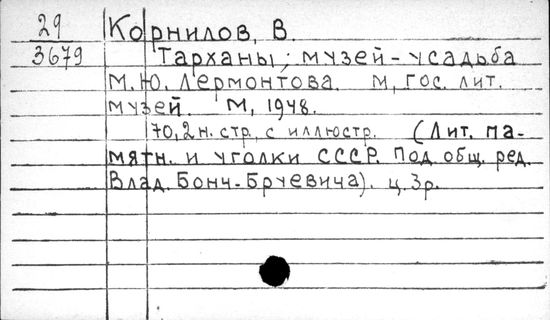 29 Корнилов, В.
3679 Тарханы; музей-усадьба
М.Ю. Лермонтова. М, Гос. лит.
музей. М, 1948.
70,2 н. стр. с иллюстр. (Лит. па-
мятн. и уголки СССР. Под общ. ред.
Влад. Бонч-Бруевича). ц. 3р.